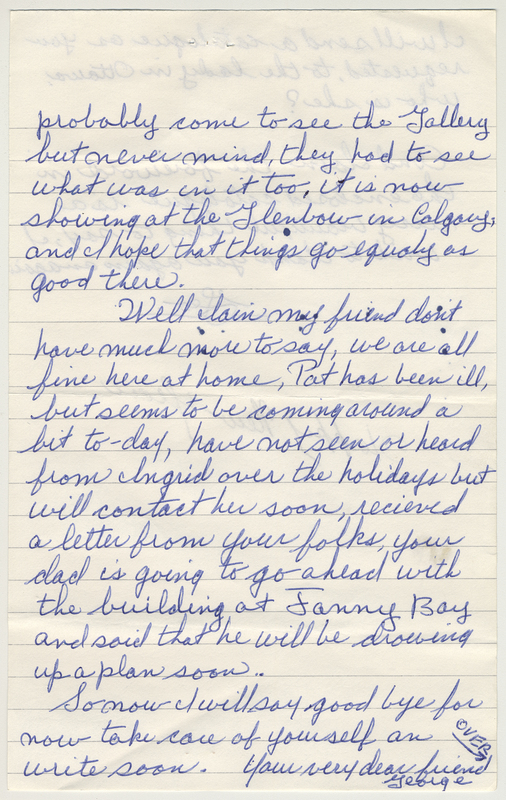 probably come to see the Gallery
but never mind, they had to see
what was in it too, it is now
showing at the Glenbow in Calgary,
and I hope that things go equaly as
good there.
Well Iain my friend don't
have much more to say, we are all
fine here at home, Pat has been ill,
but seems to be coming around a
bit to-day, have not seen or heard
from Ingrid over the holidays but
will contact her soon, recieved
a letter from your folks, your
dad is going to go ahead with
the building at Fanny Bay
and said that he will be drawing
up a plan soon..
So now I will say good bye for
now take care of yourself an
write soon. Your very dear friend
George
OVER